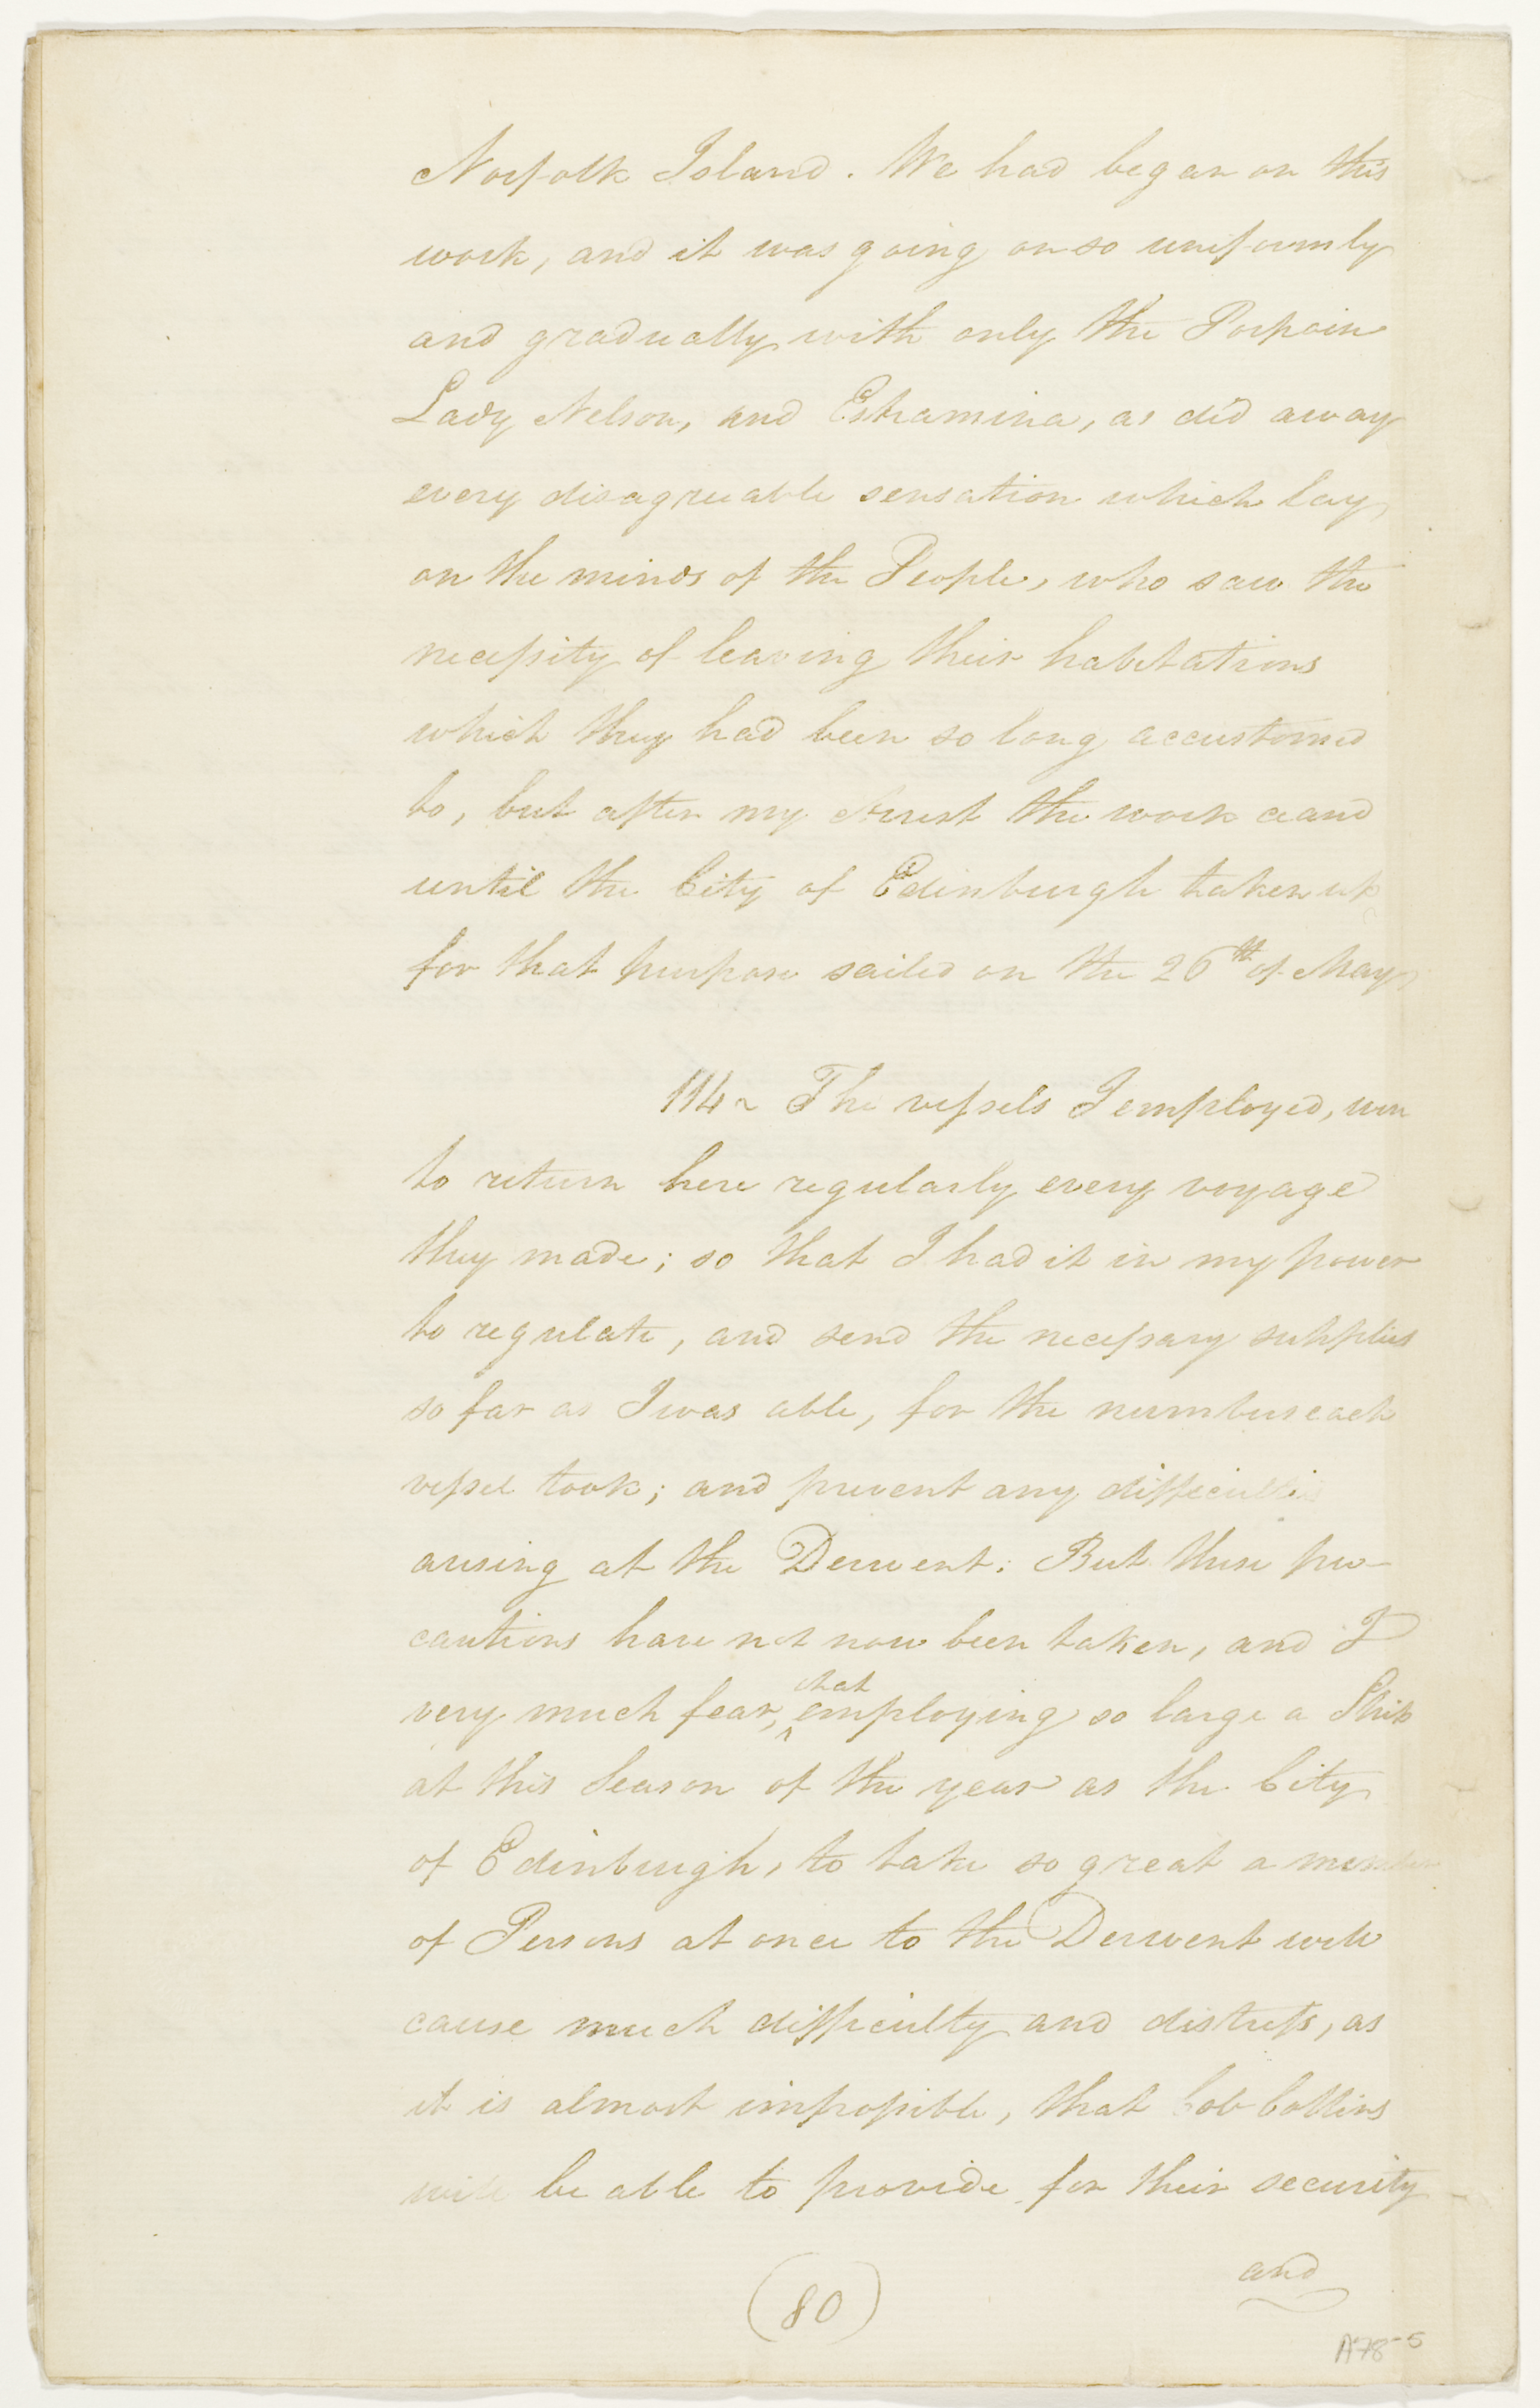 Norfolk Island. We had began on this
work, and it was going on so uniformly
and gradually with only the Porpoise
Lady Nelson, and Estramina, as did away
every disagreeable sensation which lay
on the minds of the People, who saw the
necessity of leaving their habitations
which they had been so long accustomed
to, but after my Arrest the work ceased
until the City of Edinburgh taken up
for that purpose sailed on the 26th of May
114 ~ The vessels I employed, were
to return here regularly every voyage
they made; so that I had it in my power
to regulate, and send the necessary supplies
so far as I was able, for the numbers each
vessel took; and prevent any difficulties
arising at the Derwent: But these pre-
cautions have not now been taken, and I
very much fear, that employing so large a Ship
at this Season of the year as the City
of Edinburgh, to take so great a number
of Persons at once to the Derwent will
cause much difficulty and distress, as
it is almost impossible, that Col Collins
will be able to provide for their security
and
(80)
A78-5